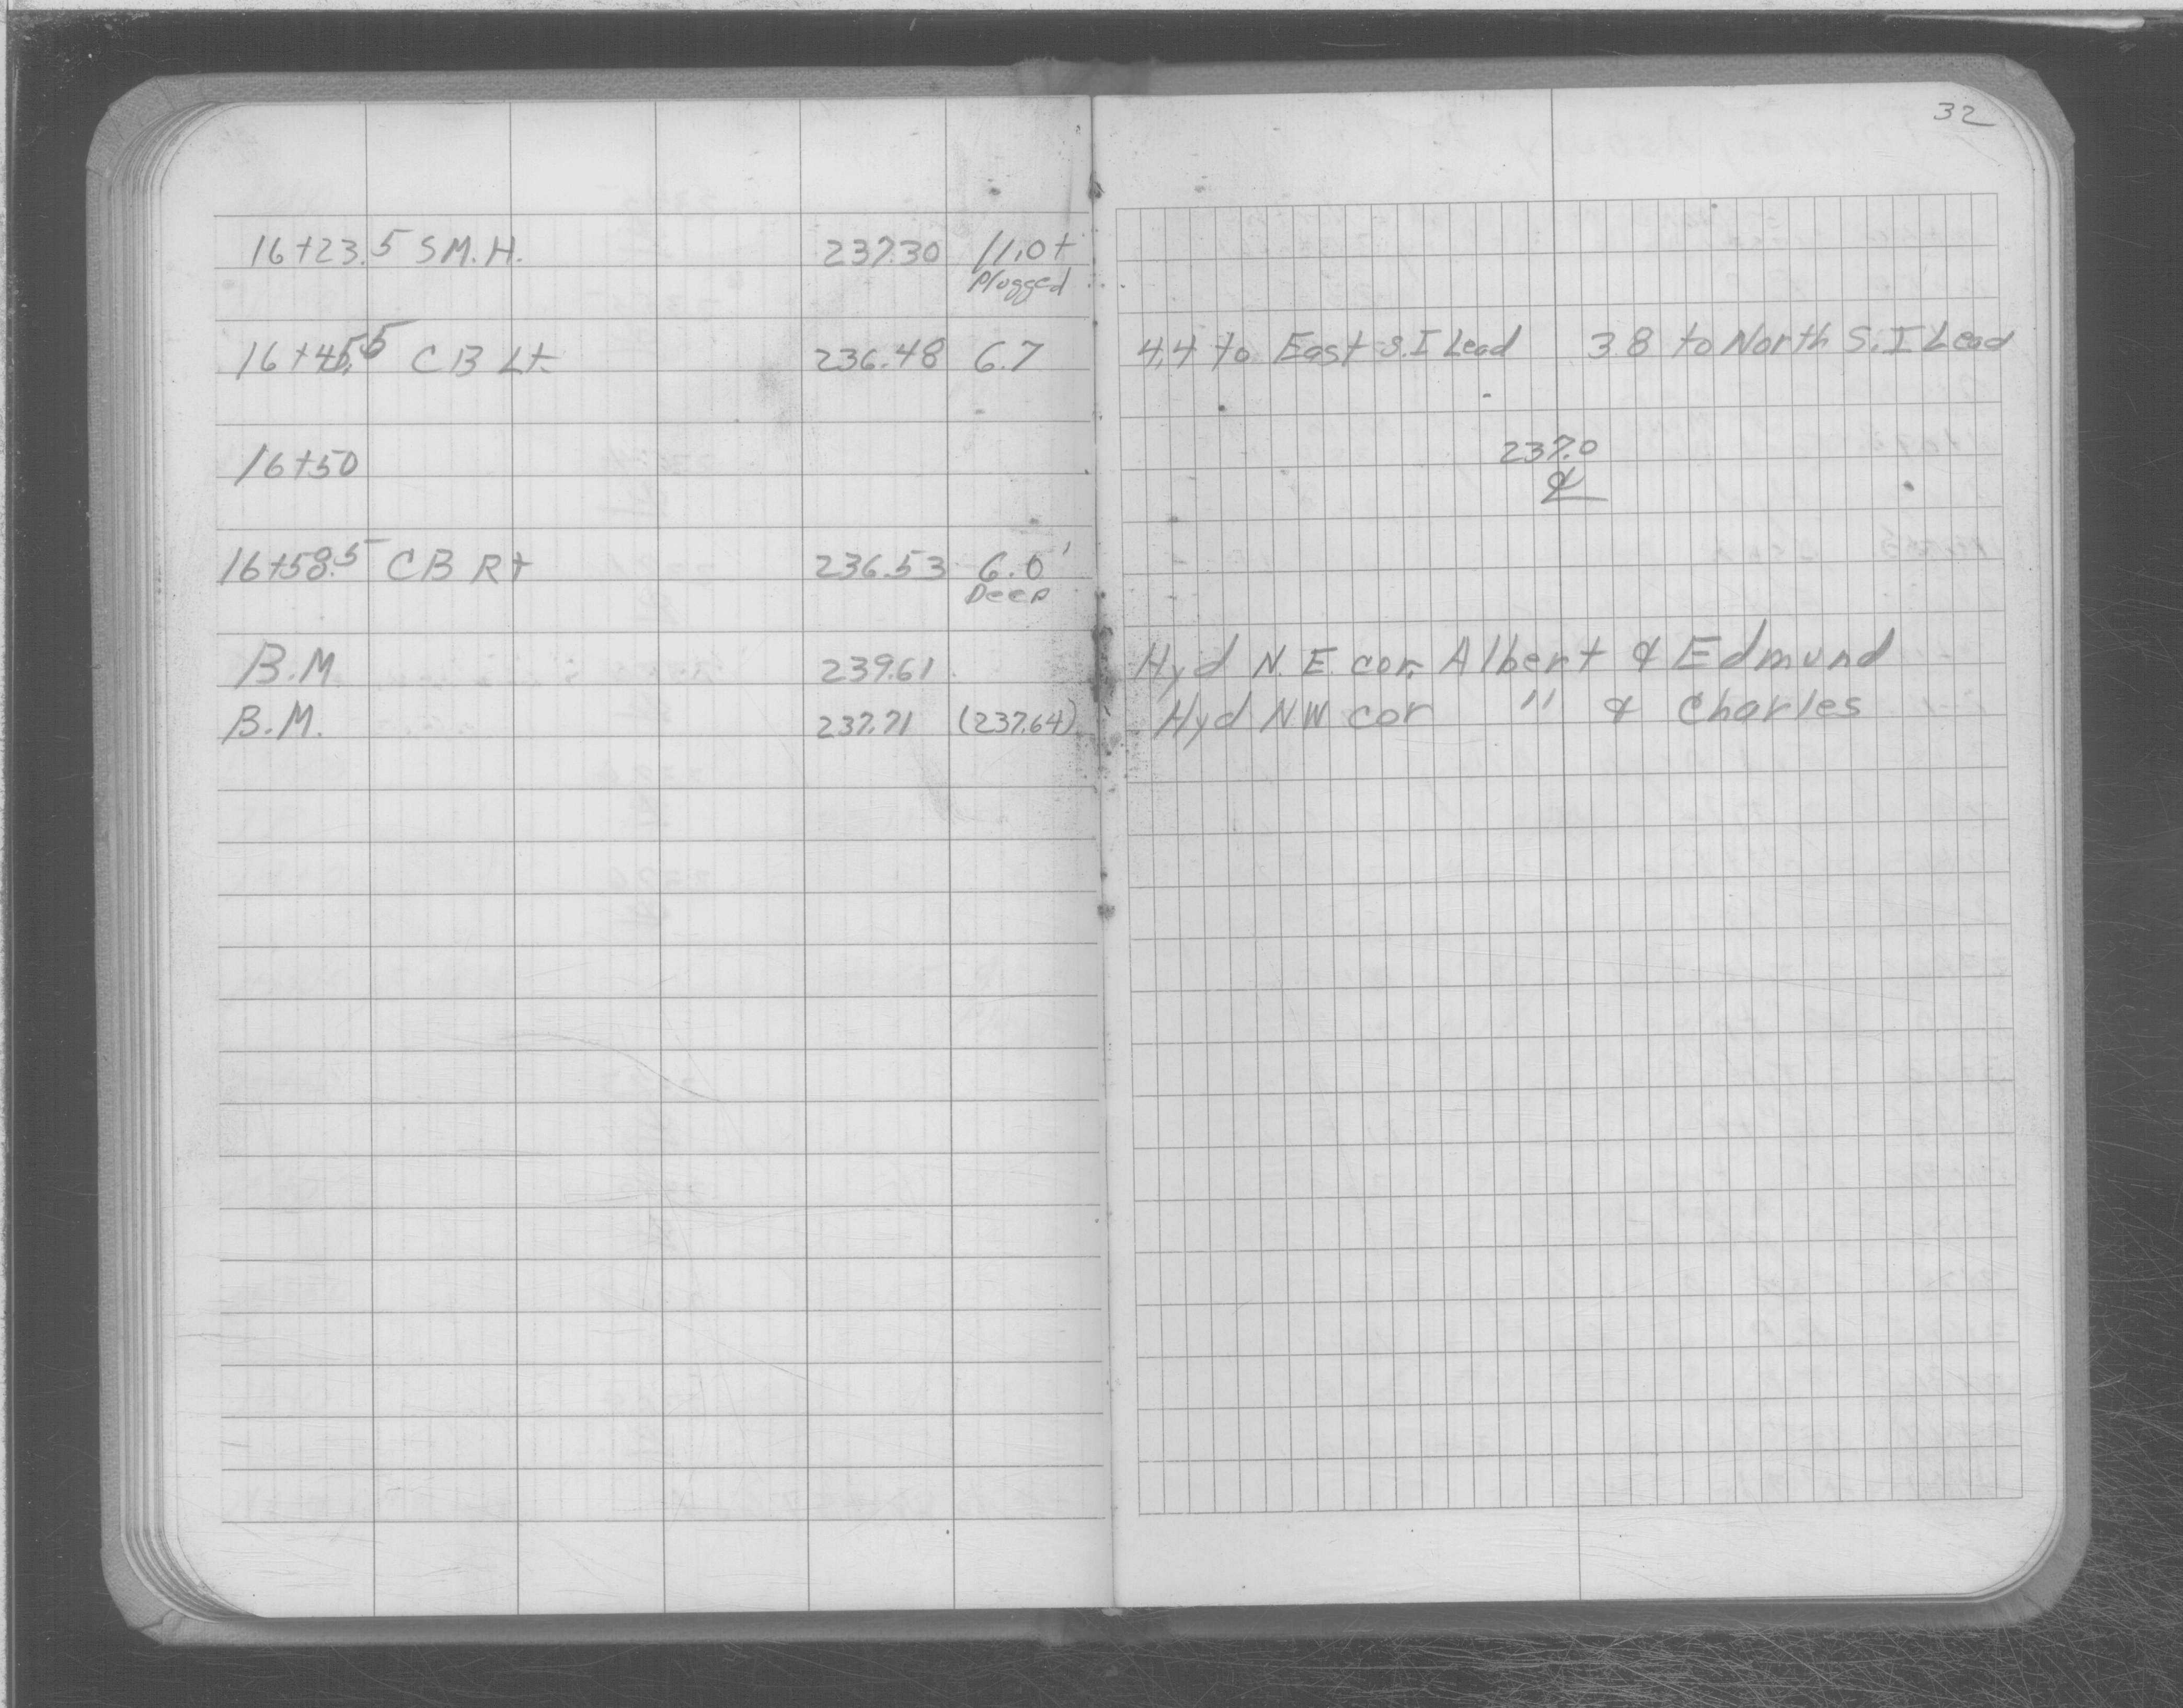 32
16+23.5 S M.H. 237.30 11.0+
Plugged
16+45.5 C B Lt 236.48 6.7 4.4 to East S.I Lead 3.8 to North S.I Lead
16+50 237.0
℄
16+58.5 C B Rt 236.53 6.0'
Deep
B.M 239.61 Hyd N.E. cor. Albert & Edmund
B.M. 237.71 (237.64) Hyd NW cor " & Charles